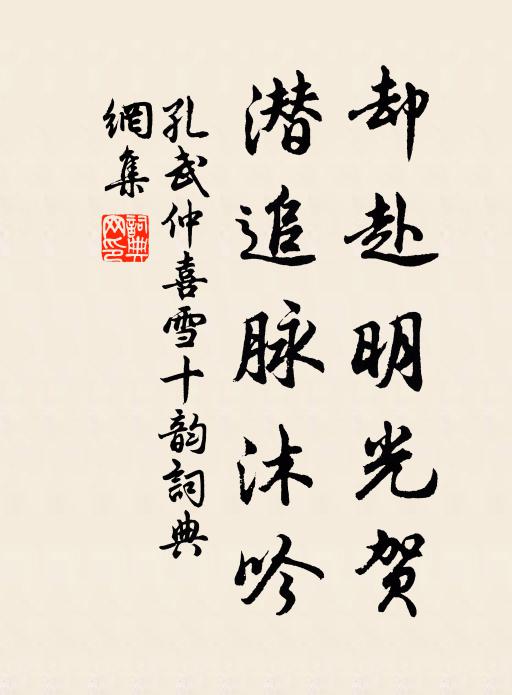 却赴明光贺
潜追脉沐吟
孔武仲喜雪十韵詞典
網集
詞典
网印